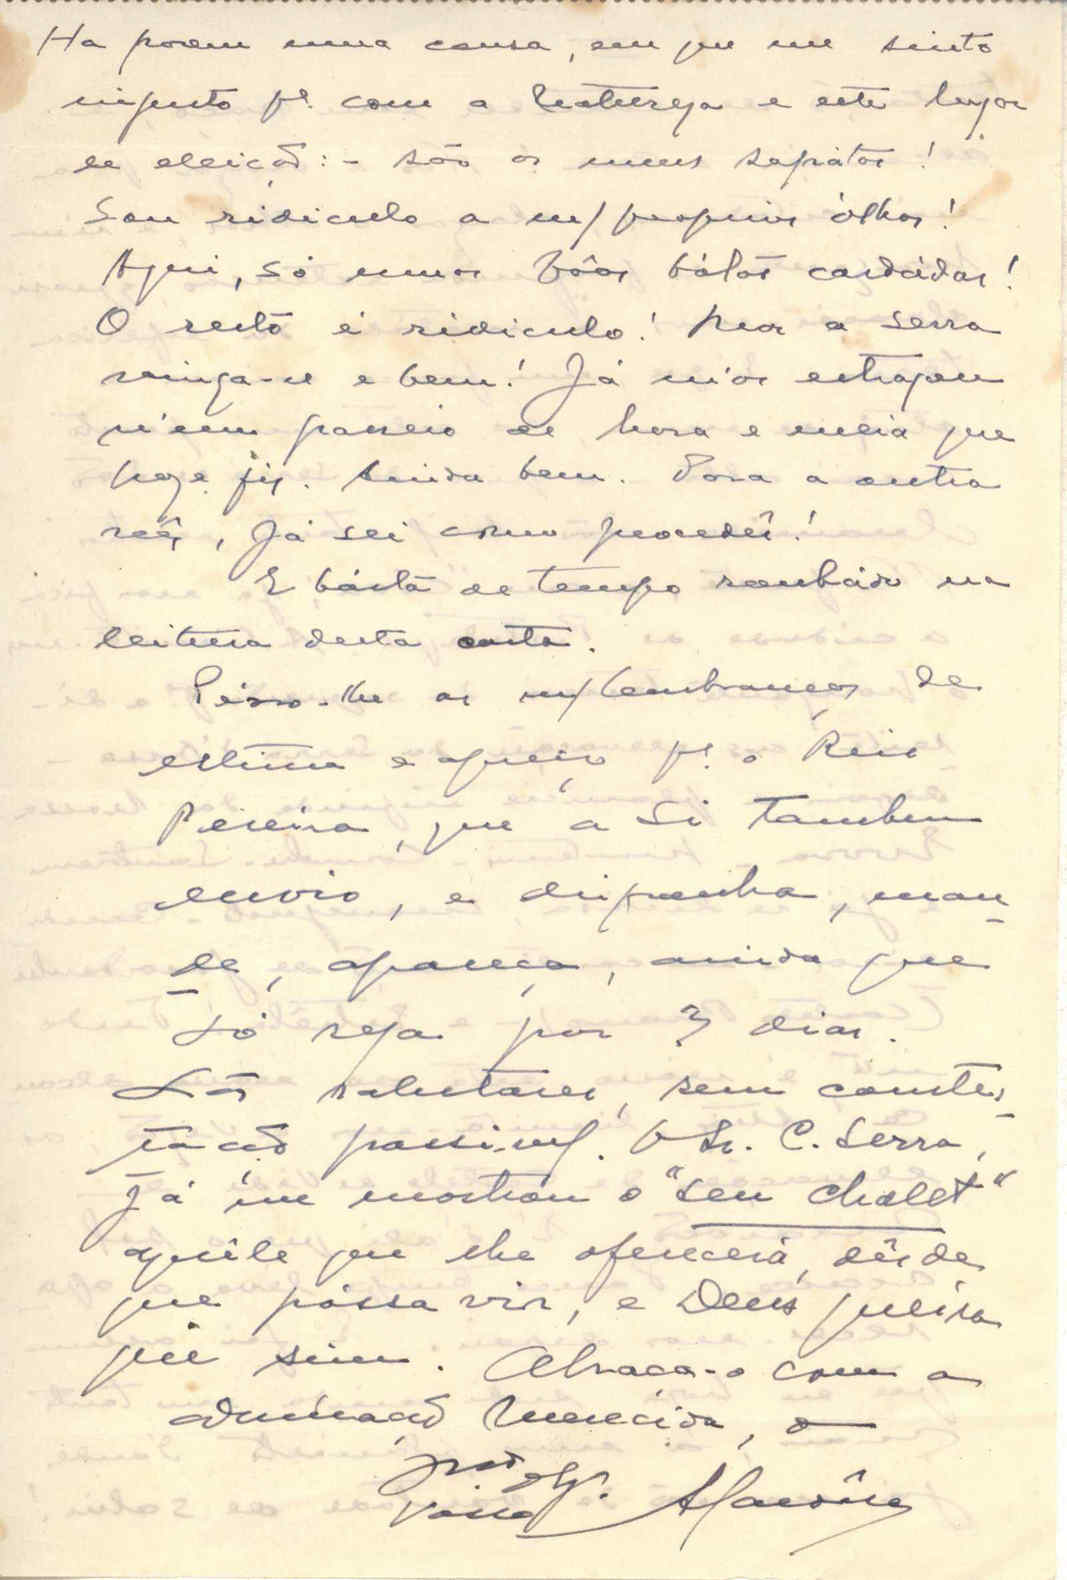 Ha porem uma cousa, em que me sinto
injusto pª. com a Natureza e este lugar
de eleição: - são os meus sapatos!
Sou ridiculo a m/ proprios ólhos!
Aqui, só umas bôas bótas cardádas!
O resto é ridiculo! Mas a serra
vinga-se e bem! Já m'os estragou
n'um passeio de hora e meia que
hoje fiz. Ainda bem. Para a outra
vêz, já sei como procedêr!
E básta de tempo roubádo na
leitura desta carta.
Peço-lhe as m/ lembranças de
estima e apreço pª. o Reis
Pereira, que a Si tambem
envio, e disponha, man-
de, apareça, ainda que
só seja por 3 dias.
São salutares, sem contes-
tação possivel. O Sr. C. Serra,
já me mostrou o "seu chalet"
aquêle que lhe oferecerá, désde
que póssa vir, e Deus queira
que sim. Abraça-o com a
admiração merecida, o
Vosso